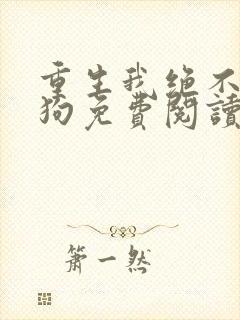 重生我绝不
狗免费阅读
箫一然